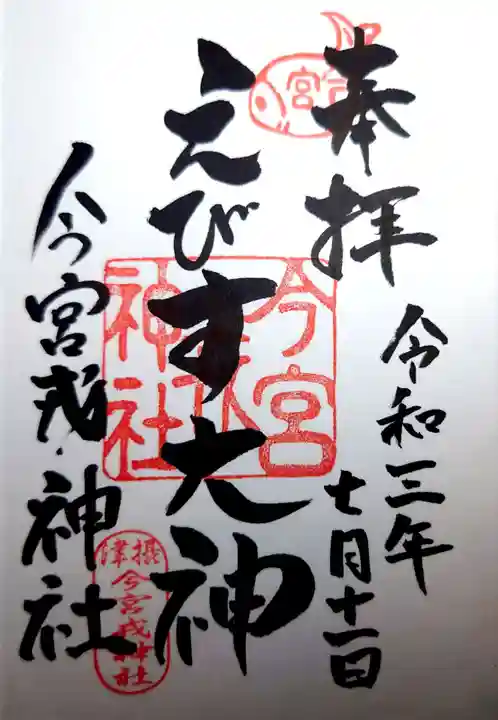 奉拝
令和三年
七月十一日
えびす大神
今宮戎神社
今宮
今宮戎神社
摂津
今宮戎神社